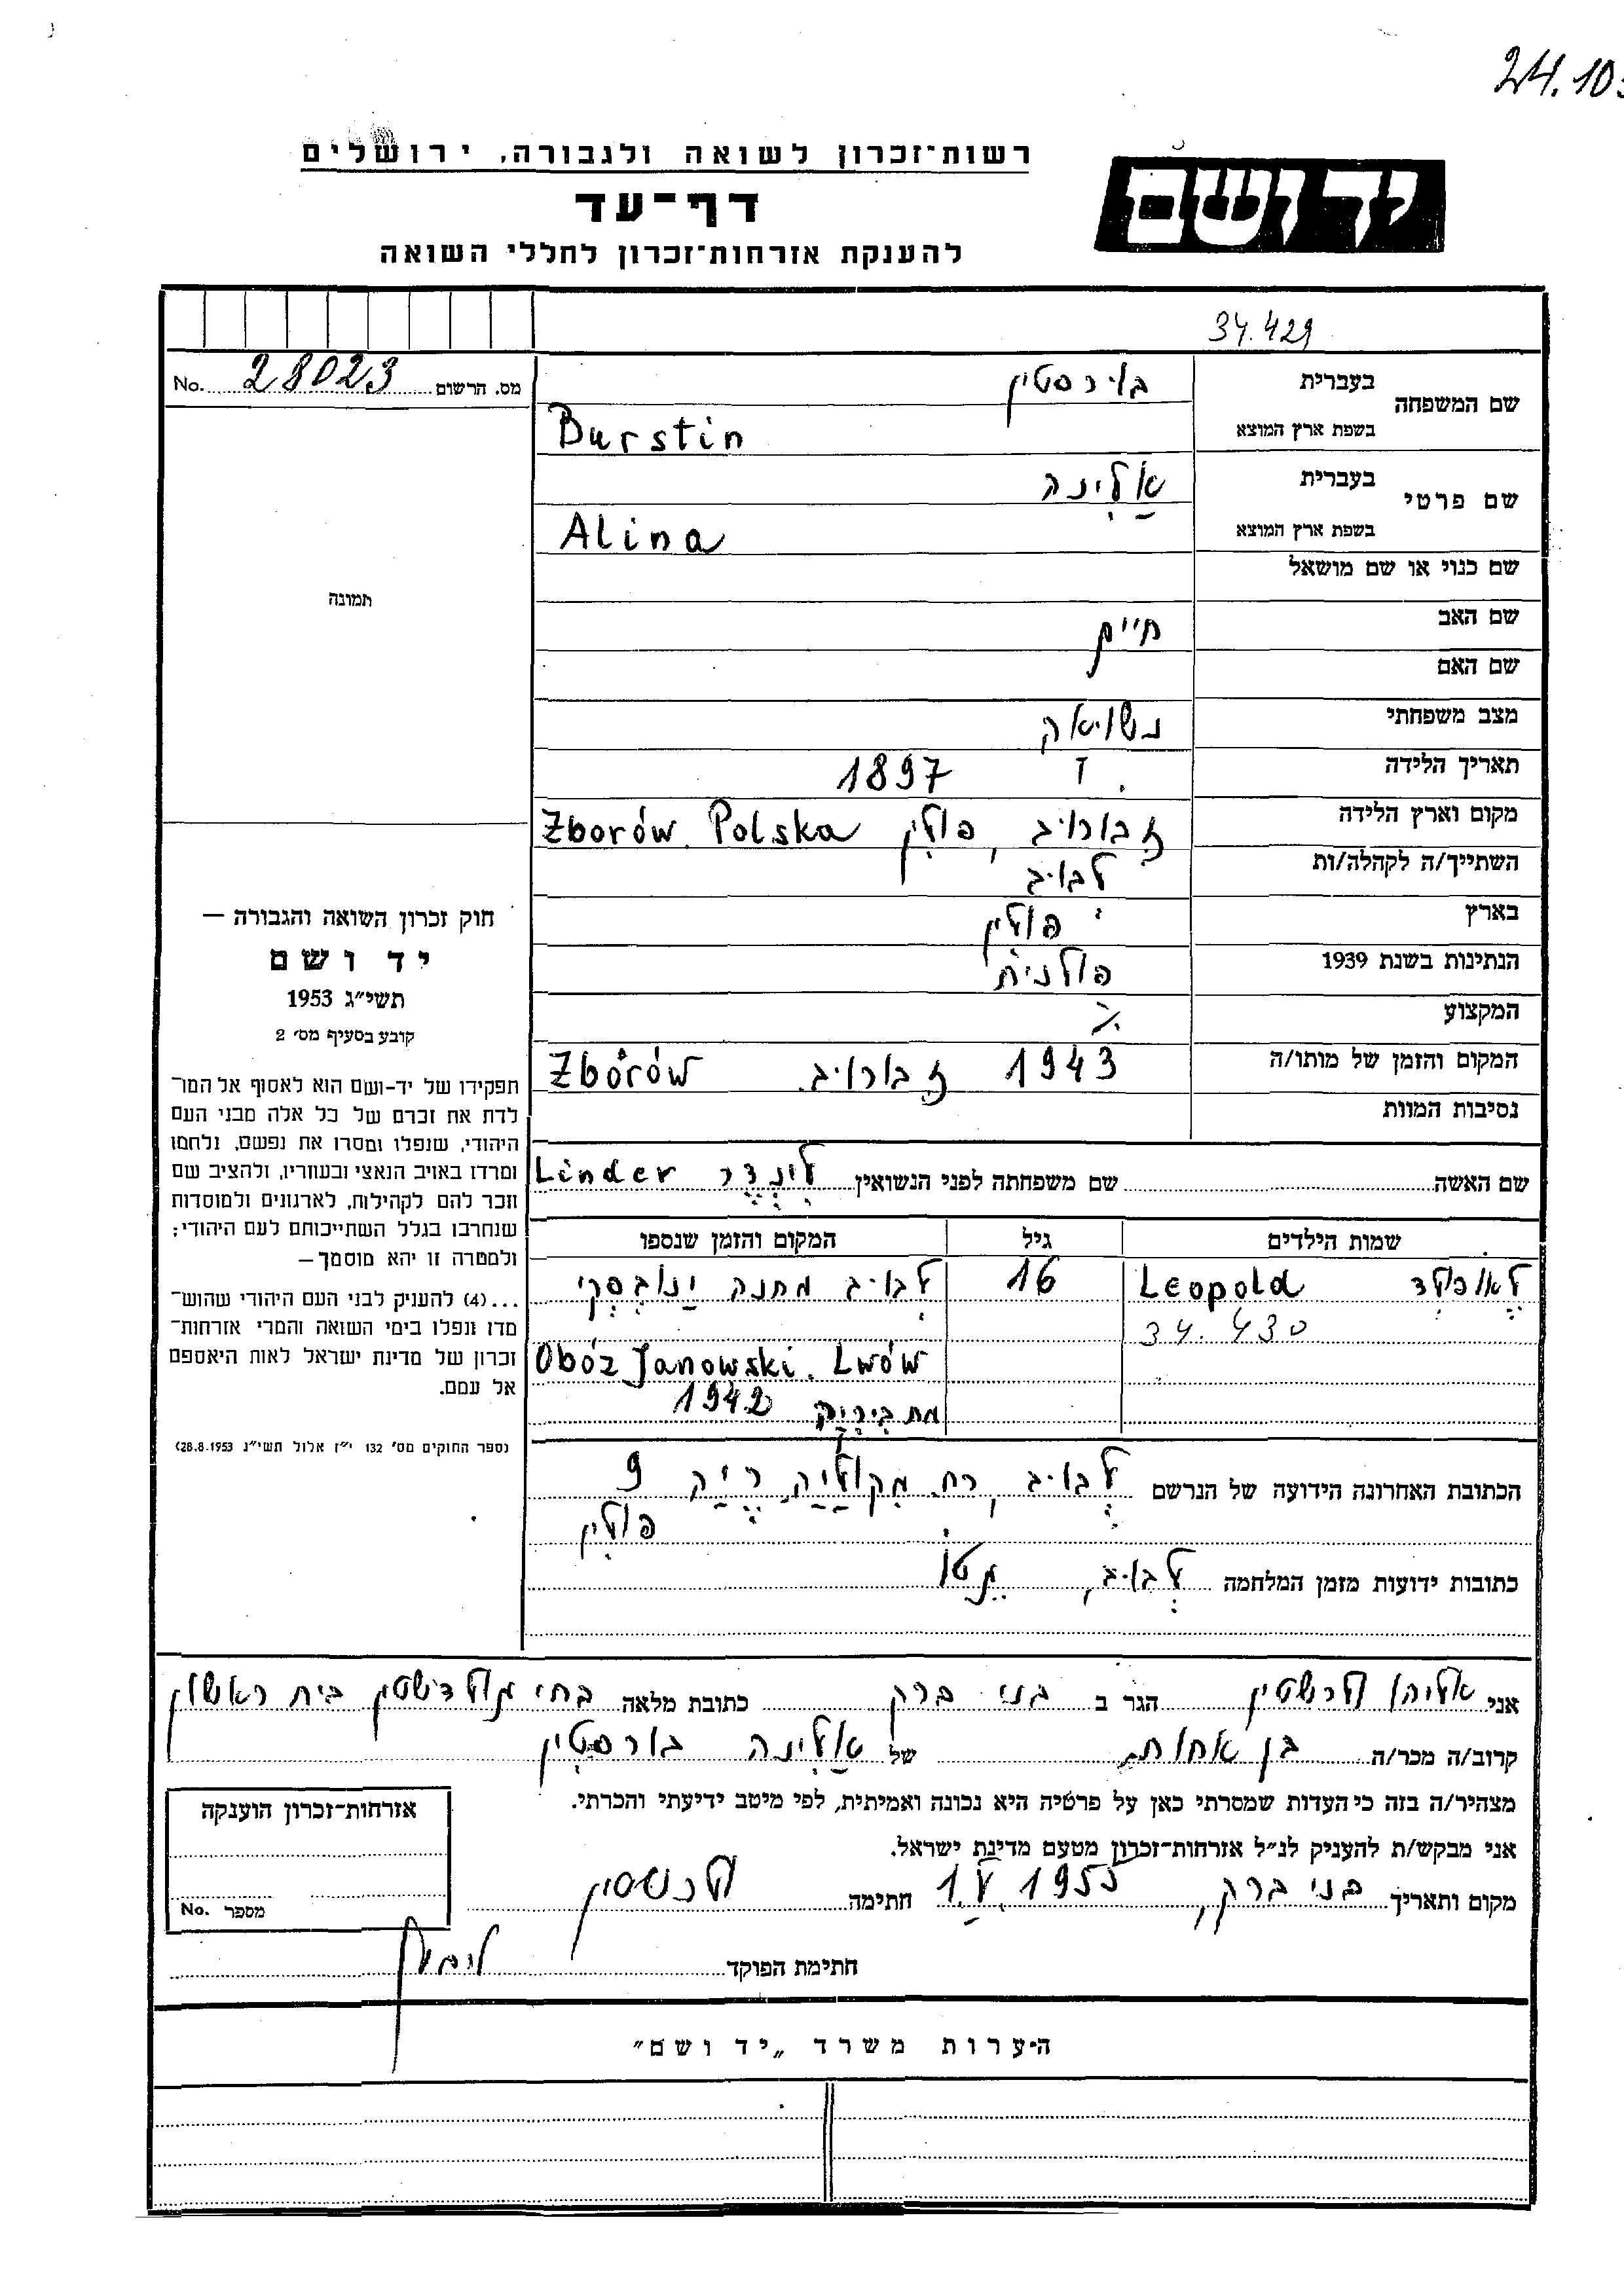 24.10
רשות־זכרון לשואה ולגבורה, ירושלים
דף־עד
להענקת אזרחות־זכרון לחללי השואה
יד ושם
34.429
מס. הרשום 28023 No.
שם המשפחה
בעברית בורסטין
בשפת ארץ המוצא Burstin
שם פרטי
בעברית אַלִינָה
בשפת ארץ המוצא Alina
שם כנוי או שם מושאל
שם האב חיים
שם האם
מצב משפחתי נשואה
תאריך הלידה 1897
מקום וארץ הלידה זבורוב, פולין Zborów. Polska
השתייך/ה לקהלה/ות לבוב
בארץ פולין
הנתינות בשנת 1939 פולנית
המקצוע
המקום והזמן של מותו/ה 1943 זבורוב Zborów
נסיבות המוות
תמונה
חוק זכרון השואה והגבורה —
יד ושם
תשי״ג 1953
קובע בסעיף מס׳ 2
תפקידו של יד-ושם הוא לאסוף אל המו־
לדת את זכרם של כל אלה מבני העם
היהודי, שנפלו ומסרו את נפשם, נלחמו
ומרדו באויב הנאצי ובעוזריו, ולהציב שם
וזכר להם לקהילות, לארגונים ולמוסדות
שנחרבו בגלל השתייכותם לעם היהודי;
ולמטרה זו יהא מוסמך —
...(4) להעניק לבני העם היהודי שהוש־
מדו ונפלו בימי השואה והמרי אזרחות־
זכרון של מדינת ישראל לאות היאספם
אל עמם.
(ספר החוקים מס׳ 132 י״ז אלול תשי״ג 28.8.1953)
שם האשה שם משפחתה לפני הנשואין לִינְדֶר Linder
שמות הילדים גיל המקום והזמן שנספו
לאופולד Leopold 16 לבוב מחנה ינובסקי
34.430
Obóz Janowski. Lwów
1942
הכתובת האחרונה הידועה של הנרשם לבוב, רח. 9
פולין
כתובות ידועות מזמן המלחמה לבוב, גטו
אני אליהו הגר ב בני ברק כתובת מלאה בית ראשון
קרוב/ה מכר/ה בן אחות של אלינה בורסטין
מצהיר/ה בזה כי העדות שמסרתי כאן על פרטיה היא נכונה ואמיתית, לפי מיטב ידיעתי והכרתי.
אני מבקש/ת להעניק לנ״ל אזרחות־זכרון מטעם מדינת ישראל.
מקום ותאריך בני ברק, 1955 חתימה
חתימת הפוקד
אזרחות־זכרון הוענקה
מספר No.
הערות משרד „יד ושם״